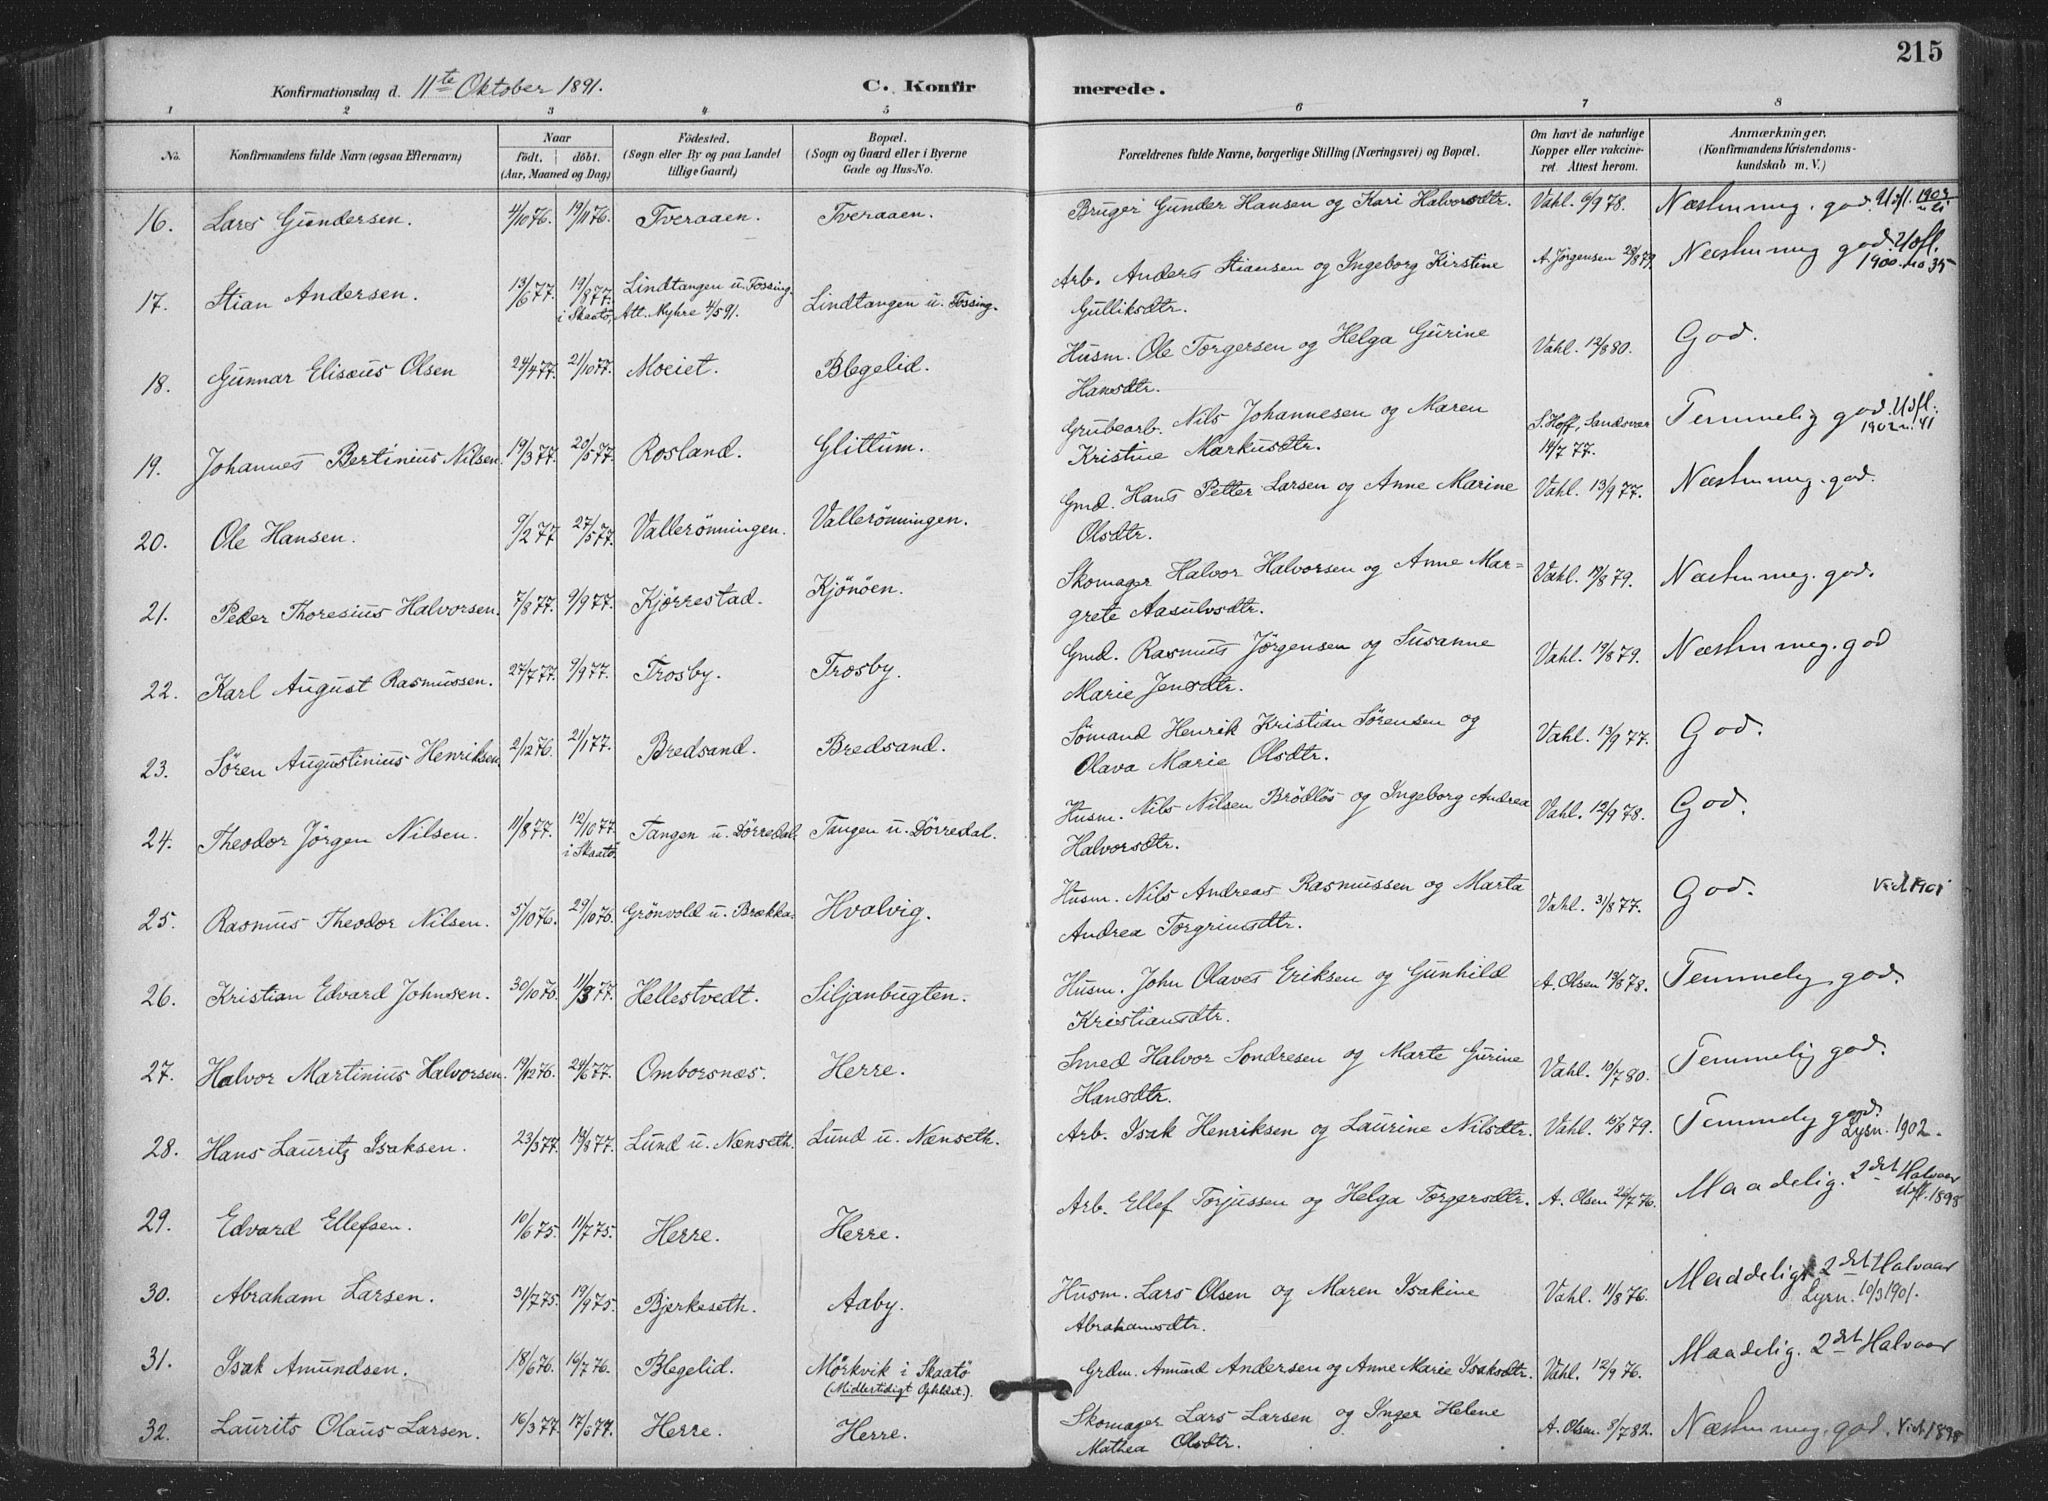 215
Konfirmationsdag d. 11te Oktober 1891. C. Konfirmerede.
1 2 3 4 5 6 7 8
No. Konfirmandens fulde Navn (ogsaa Efternavn) Naar födt. döbt. (Aar, Maaned og Dag) Födested. (Sogn eller By og paa Landet tillige Gaard) Bopæl. (Sogn og Gaard eller i Byerne Gade og Hus-No. Forældrenes fulde Navne, borgerlige Stilling (Næringsvei) og Bopæl. Om havt de naturlige Kopper eller vakcineret. Attest herom. Anmærkninger. (Konfirmandens Kristendomskundskab m. V.)
16. Lars Gundersen. 4/10 76. 19/11 76. Tveraaen. Tveraaen. Bruger Gunder Hansen og Kari Halvorsdtr. Vahl. 6/9 78. Næsten meg. god. Udfl. 1903
17. Stian Andersen. 13/6 77. 19/8 77. i Skaatö, Lindtangen u. Fossing. Att. Myhre 4/5 91. Lindtangen u. Fossing. Arb. Anders Stiansen og Ingeborg Kirstine Gulliksdtr. A. Jörgensen 28/8 79. Næsten meg god. Udfl. 1900. No 35
18. Gunnar Elisæus Olsen 24/4 77. 21/10 77. Moeiet. Blegelid. Husm. Ole Torgersen og Helga Gurine Hansdtr. Vahl. 12/8 80. God.
19. Johannes Bertinius Nilsen. 19/3 77. 20/5 77. Rosland. Glittum. Grubearb. Nils Johannesen og Maren Kristine Markusdtr. S. Hoff, Sandsvær 14/7 77. Temmelig god. Udfl. 1902 n. 41
20. Ole Hansen. 9/2 77 27/5 77. Vallerönningen. Vallerönningen. Gmd. Hans Petter Larsen og Anne Marine Olsdtr. Vahl. 13/9 77. Næsten meg. god.
21. Peder Thoresius Halvorsen. 7/8 77. 9/9 77. Kjörrestad. Kjönöen. Skomager Halvor Halvorsen og Anne Margrete Aasulvsdtr. Vahl. 19/8 79. Næsten meg. god.
22. Karl August Rasmussen. 27/7 77. 9/9 77. Trosby. Trosby. Gmd. Rasmus Jørgensen og Susanne Marie Jensdtr. Vahl. 19/8 79. Næsten meg. god
23. Sören Augustinius Henriksen. 2/12 76. 21/1 77. Bredsand. Bredsand. Sömand Henrik Kristian Sørensen og Olava Marie Olsdtr. Vahl. 13/9 77. God.
24. Theodor Jörgen Nilsen. 11/8 77. 12/10 77. i Skaatö. Tangen u. Dörredal. Tangen u. Dörredal. Husm. Nils Nilsen Brödlös og Ingeborg Andrea Halvorsdtr. Vahl. 12/9 78. God.
25. Rasmus Theodor Nilsen. 5/10 76. 29/10 76. Grönvold u. Brækka. Hvalvig. Husm. Nils Andreas Rasmussen og Marta Andrea Torgrimsdtr. Vahl. 31/8 77. God. Vid. 1901
26. Kristian Edvard Johnsen. 30/10 76. 11/3 77. Hellestvedt. Siljanbugten. Husm. John Olaves Eriksen og Gunhild Kristiansdtr. A. Olsen 13/8 78. Temmelig god.
27. Halvor Martinius Halvorsen. 19/12 76. 24/6 77. Omborsnæs. Herre. Smed Halvor Sondresen og Marte Gurine Hansdtr. Vahl. 10/7 80. Temmelig god.
28. Hans Lauritz Isaksen. 23/3 77. 19/8 77. Lund u. Nænseth. Lund u. Nænseth. Arb. Isak Henriksen og Laurine Nilsdtr. Vahl. 15/8 79. Temmelig god. Lysn. 1902.
29. Edvard Ellefsen. 10/6 75. 11/7 75. Herre. Herre. Arb. Ellef Torjussen og Helga Torgersdtr. A. Olsen 26/7 76. Maadelig. 2det Halvaar Udfl. 1898
30. Abraham Larsen. 31/7 75. 19/9 75. Bjerkeseth. Aaby. Husm. Lars Olsen og Maren Isakine Abrahamsdtr. Vahl. 11/8 76. Maadelig. 2det Halvaar Lysn. 10/3 1901.
31. Isak Amundsen. 18/6 76. 16/7 76. Blegelid. Mörkvik i Skaatö (Midlertidigt Opholdst.). Grdm. Amund Andersen og Anne Marie Isaksdtr. Vahl. 12/9 76. Maadelig. 2det Halvaar
32. Laurits Olaus Larsen. 16/3 77. 17/6 77. Herre. Herre. Skomager Lars Larsen og Inger Helene Mathea Olsdtr. A. Olsen. 8/7 82. Næsten meg. god. Vid. 1898